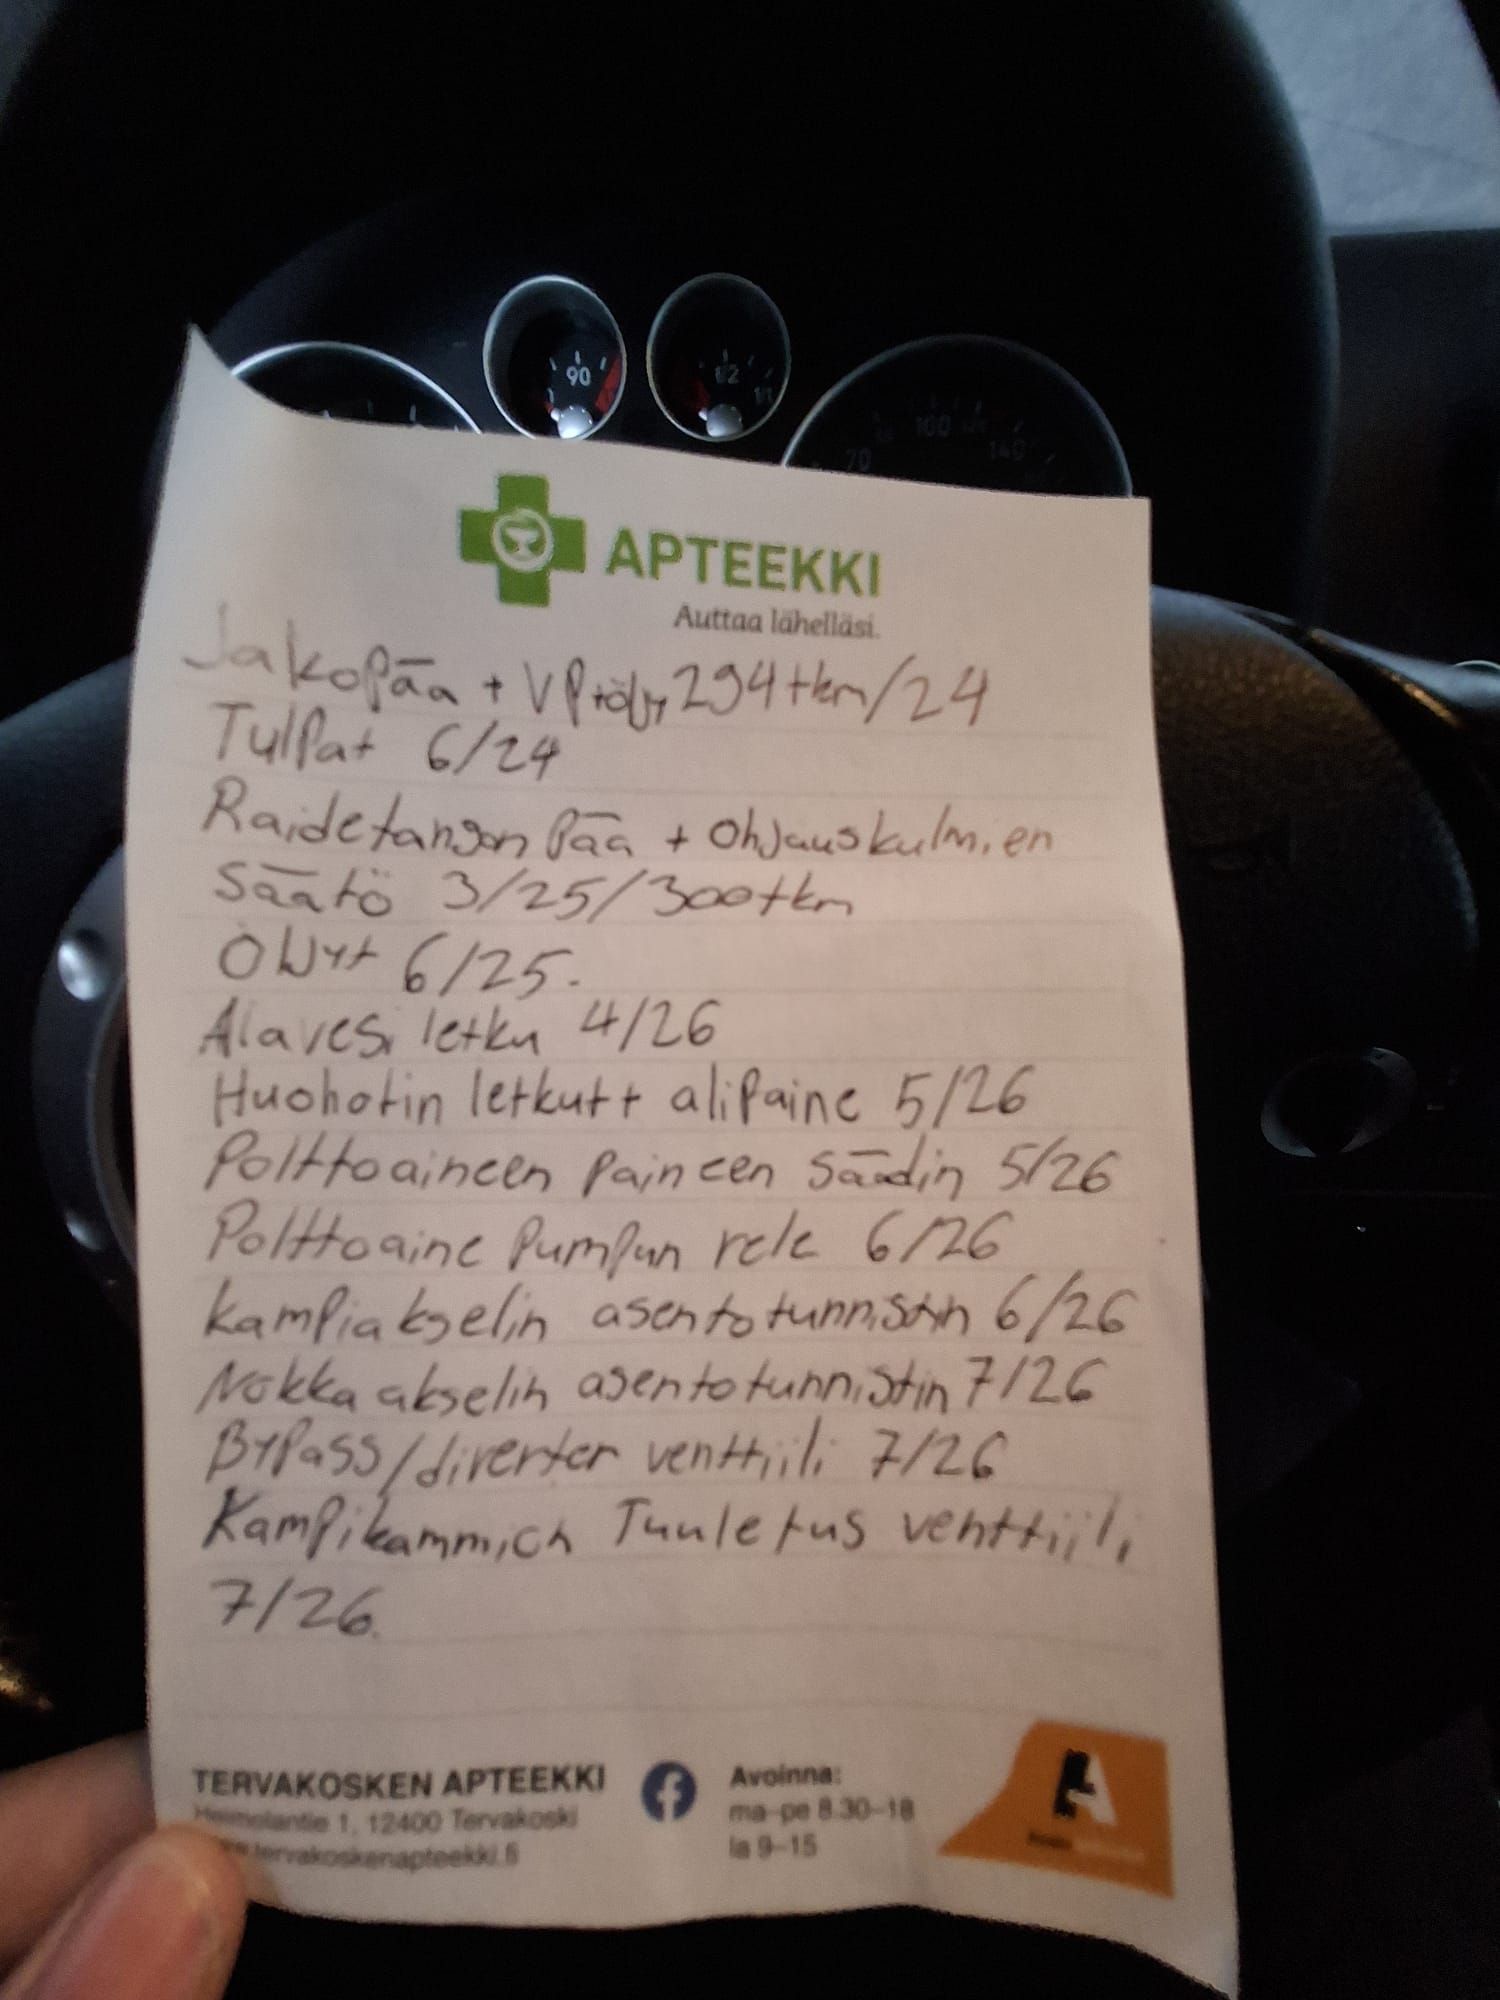 90
1/2
1/1
70
100
140
APTEEKKI
Auttaa lähelläsi.
Jakopää + VP 294tkm/24
Tulpat 6/24
Raidetangon pää + Ohjauskulmien
säätö 3/25/300tkm
Öljyt 6/25.
Alavesi letku 4/26
Huohotin letkutt alipaine 5/26
Polttoaineen paineen säädin 5/26
Polttoaine pumpun rele 6/26
Kampiakselin asentotunnistin 6/26
Nokka akselin asentotunnistin 7/26
Bypass/diverter venttiili 7/26
Kampikammion Tuuletus venttiili
7/26.
TERVAKOSKEN APTEEKKI
Heimolantie 1, 12400 Tervakoski
tervakoskenapteekki.fi
Avoinna:
ma-pe 8.30-18
la 9-15
A